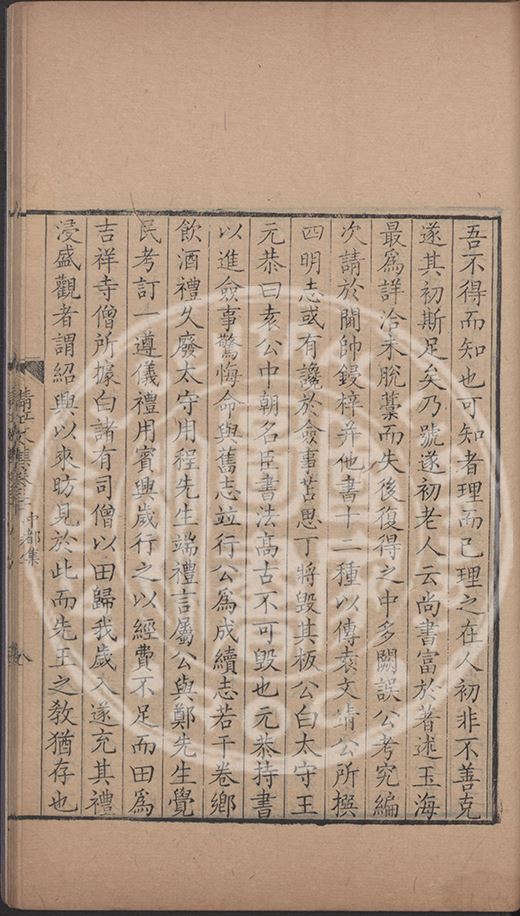 吾不得而知也可知者理而已理之在人初非不善克
遂其初斯足矣乃號遂初老人云尚書富於著述玉海
最爲詳洽未脫藁而失後復得之中多闕誤公考究編
次請於閫帥鋟梓并他書十二種以傳袁文清公所撰
四明志或有讒於僉事苫思丁將毀其板公白太守王
元恭曰袁公中朝名臣書法高古不可毀也元恭持書
以進僉事驚悔命與舊志竝行公爲成續志若干卷鄉
飲酒禮久廢太守用程先生端禮言屬公與鄭先生覺
民考訂一遵儀禮用賓興歲行之以經費不足而田爲
吉祥寺僧所據白諸有司僧以田歸我歲入遂充其禮
浸盛觀者謂紹興以來昉見於此而先王之敎猶存也
中都集
八